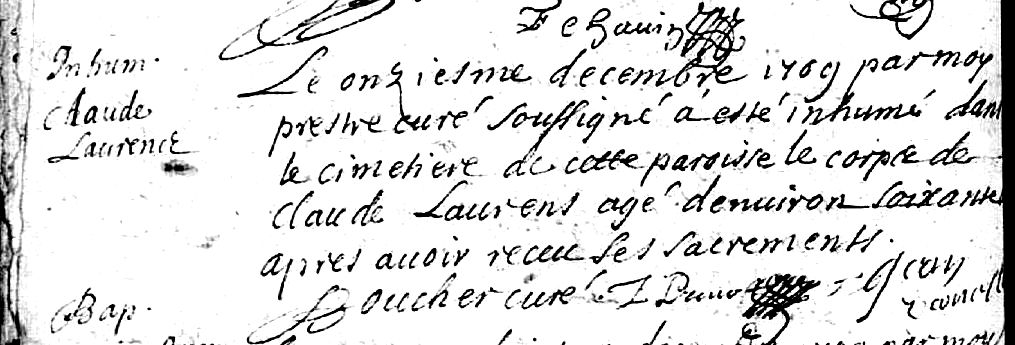 Inhum.
Claude
Laurence
Le onziesme decembre 1709 par moy
prestre curé soussigné a esté inhumé dans
le cimetiere de cette paroisse le corps de
Claude Laurens agé denuiron soixante
apres auoir receu ses sacrements.
Boucher curé
Bap.
par moy